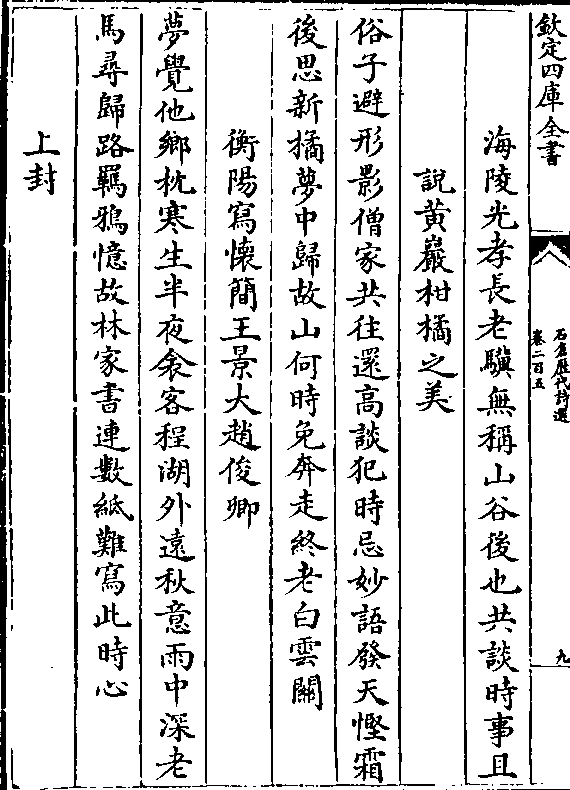 欽定四庫全書
石倉歷代詩選
卷二百五
九
海陵光孝長老驥無稱山谷後也共談時事且
說黄巖柑橘之美
俗子避形影僧家共往還高談犯時忌妙語發天慳霜
後思新橘夢中歸故山何時免奔走終老白雲關
衡陽寫懐簡王景大趙俊卿
夢覺他鄉枕寒生半夜衾客程湖外遠秋意雨中深老
馬尋歸路羈鴉憶故林家書連數紙難寫此時心
上封